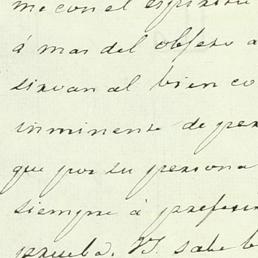 me con el espiritu
á mas del objeto a
sirvan al bien co
inminente de per
que por su persona
siempre á prefer
prueba. V. sabe b